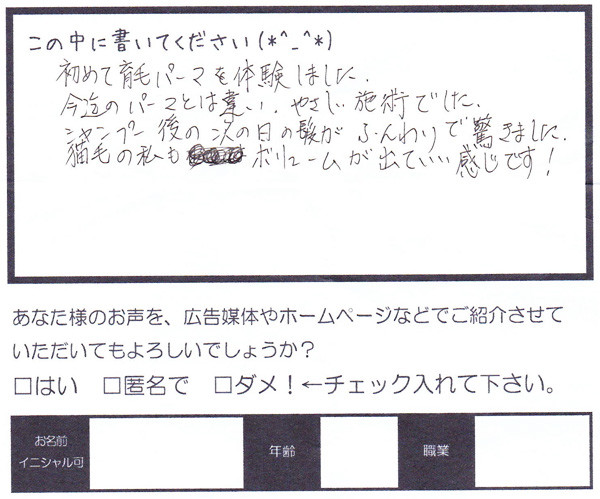 この中に書いてください(*^_^*)
初めて育毛パーマを体験しました.
今迄のパーマとは違い、やさしい施術でした.
シャンプー後の次の日の髪がふんわりで驚きました.
猫毛の私もボリュームが出ていい感じです!
あなた様のお声を、広告媒体やホームページなどでご紹介させて
いただいてもよろしいでしょうか?
□はい □匿名で □ダメ!←チェック入れて下さい。
お名前 年齢 職業
イニシャル可